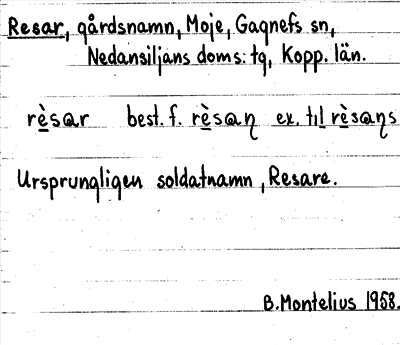 Resar, gårdsnamn, Moje, Gagnefs sn,
Nedansiljans doms: tg, Kopp. län.
rèsar best. f. rèsaɳ ex. til rèsaɳs
Ursprungligen soldatnamn, Resare.
B. Montelius 1958.